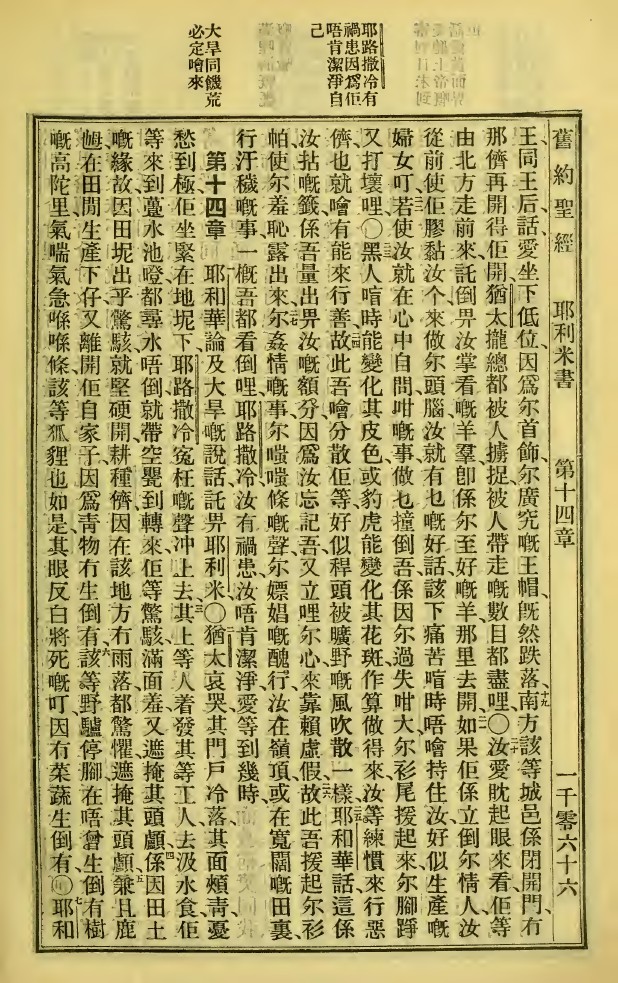 耶路撒冷有
禍患因爲佢
唔肯潔淨自
己
大旱同饑荒
必定噲來
舊約聖經 耶利米書 第十四章 一千零六十六
王同王后話愛坐下低位因爲尔首飾尔廣究嘅王帽旣然跌落十九南方該等城邑係閉開門有
那儕再開得佢開猶太攏總都被人擄捉被人帶走嘅數目都盡哩〇二十汝愛眈起眼來看佢等
由北方走前來託倒畀汝掌看嘅羊羣卽係尔至好嘅羊那里去開二一如果佢係立倒尔情人汝
從前使佢膠黏汝个來做尔頭腦汝就有乜嘅好話該下痛苦喑時唔噲持住汝好似生產嘅
婦女叮二二若使汝就在心中自問咁嘅事做乜撞倒吾係因尔過失咁大尔衫尾援起來尔腳踭
又打壞哩〇二三黑人喑時能變化其皮色或豹虎能變化其花斑作算做得來汝等練慣來行惡
儕也就噲有能來行善二四故此吾噲分散佢等好似稈頭被曠野嘅風吹散一樣二五耶和華話這係
汝拈嘅籤係吾量出畀汝嘅額分因爲汝忘記吾又立哩尔心來靠賴虛假二六故此吾援起尔衫
帕使尔羞恥露出來二七尔姦情嘅事尔嗤嗤條嘅聲尔嫖娼嘅醜行汝在嶺頂或在寬闊嘅田裏
行汙穢嘅事一槪吾都看倒哩耶路撒冷汝有禍患汝唔肯潔淨愛等到幾時
第十四章 耶和華論及大旱嘅說話託畀耶利米〇二猶太哀哭其門戶冷落其面頰靑憂
愁到極佢坐緊在地坭下耶路撒冷寃枉嘅聲沖上去三其上等人着發其等工人去汲水食佢
等來到蠆水池噔都尋水唔倒就帶空甖到轉來佢等驚駭滿面羞又遮掩其頭顱四係因田土
嘅緣故因田坭出乎驚駭就堅硬開耕種儕因在該地方冇雨落都驚懼遮掩其頭顱五兼且鹿
𡜵在田間生產下仔又離開佢自家子因爲靑物冇生倒有六該等野驢停腳在唔曾生倒有樹
嘅高陀里氣喘氣急喺喺條該等狐狸也如是其眼反白將死嘅叮因冇菜蔬生倒有〇七耶和